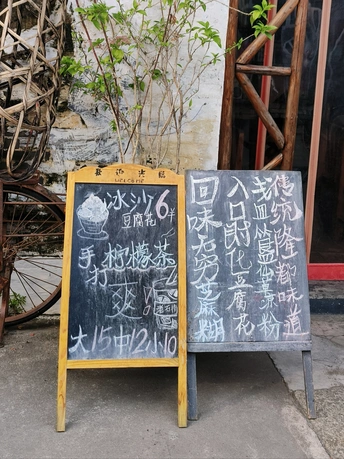 歡迎光臨
WELCOME
冰沙 6
豆腐花
手打
柠檬茶
爽
大15中12小10
传统隆都味道
粉
入口即化豆腐花
回味无穷芝麻糊